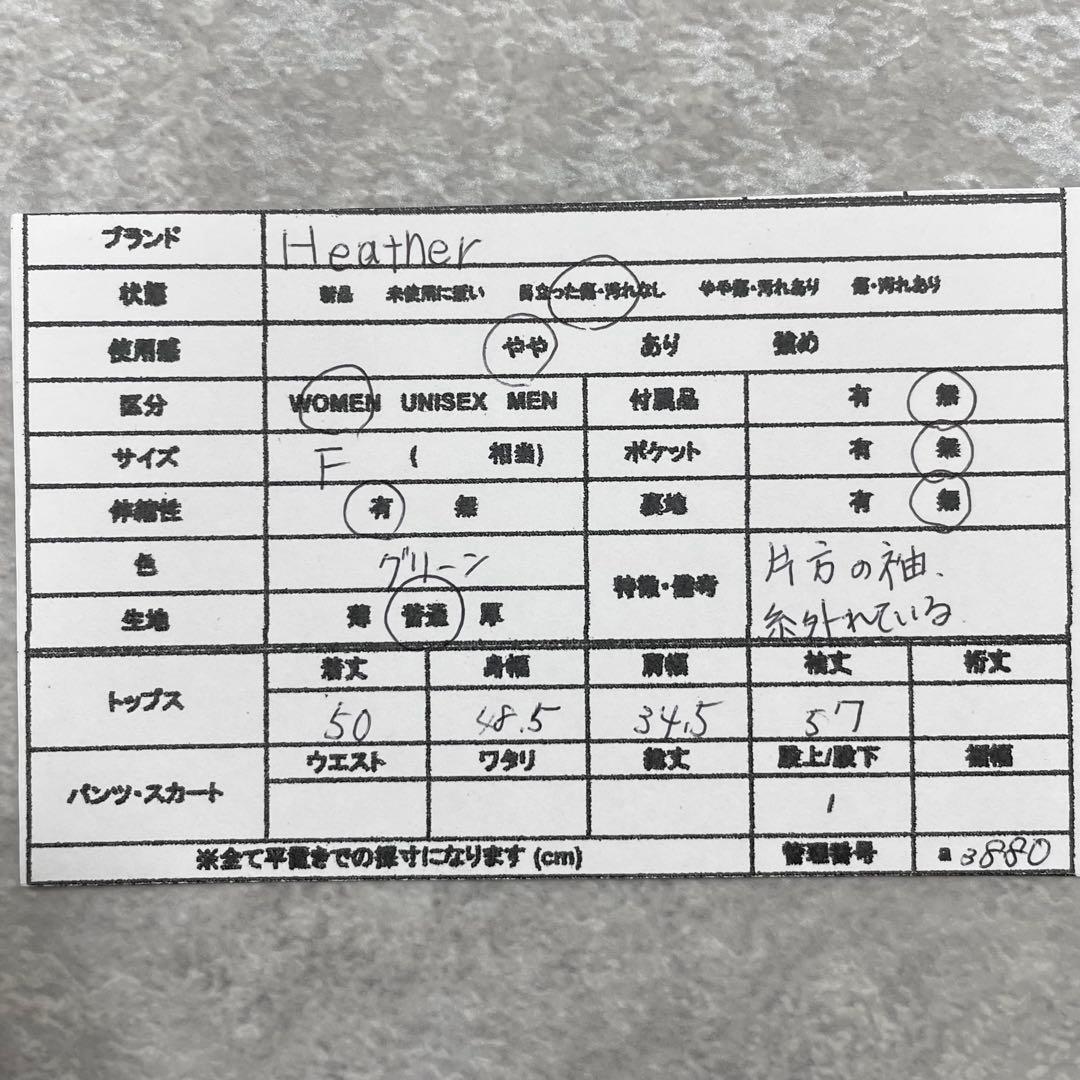 ブランド Heather
状態 新品 未使用に近い 目立った傷・汚れなし やや傷・汚れあり 傷・汚れあり
使用感 やや あり 強め
区分 WOMEN UNISEX MEN 付属品 有 無
サイズ F ( 相当) ポケット 有 無
伸縮性 有 無 裏地 有 無
色 グリーン 特徴・備考 片方の袖、
糸外れている
生地 薄 普通 厚
トップス 着丈 身幅 肩幅 袖丈 裄丈
50 48.5 34.5 57
パンツ・スカート ウエスト ワタリ 総丈 股上/股下 裾幅
/
※全て平置きでの採寸になります(cm) 管理番号 a 3880